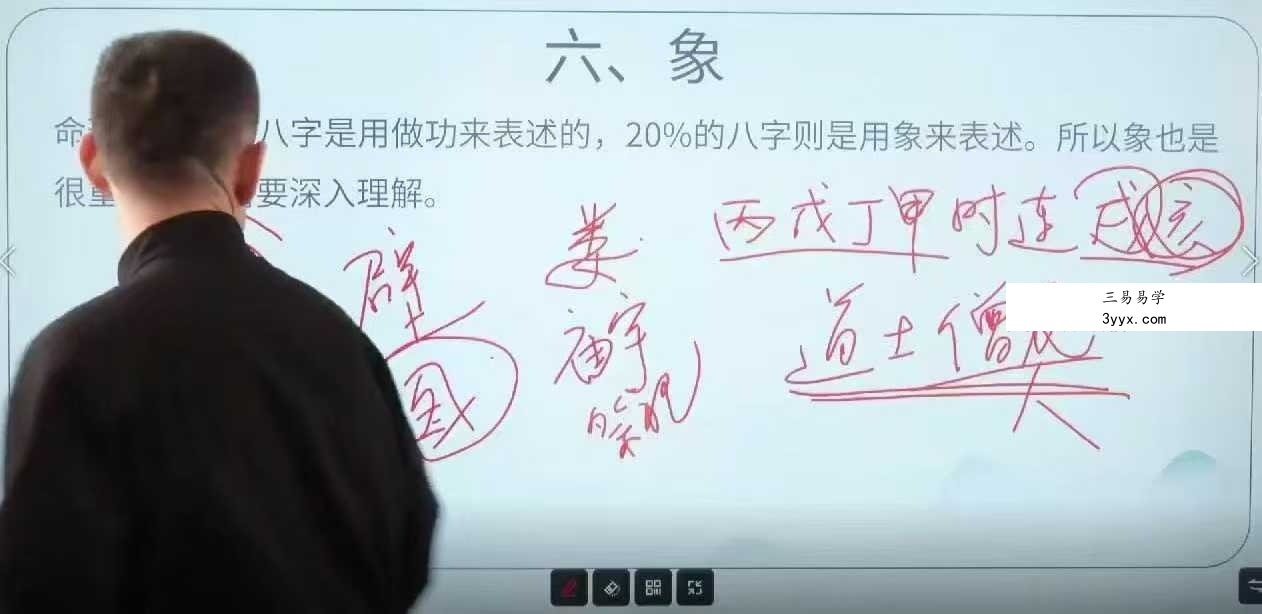 六、象
命 八字是用做功来表述的，20%的八字则是用象来表述。所以象也是
很 要深入理解。
丙戊丁甲时连戌亥
壁 娄
庙宇
道士僧
祭祀
三易易学
3yyx.com